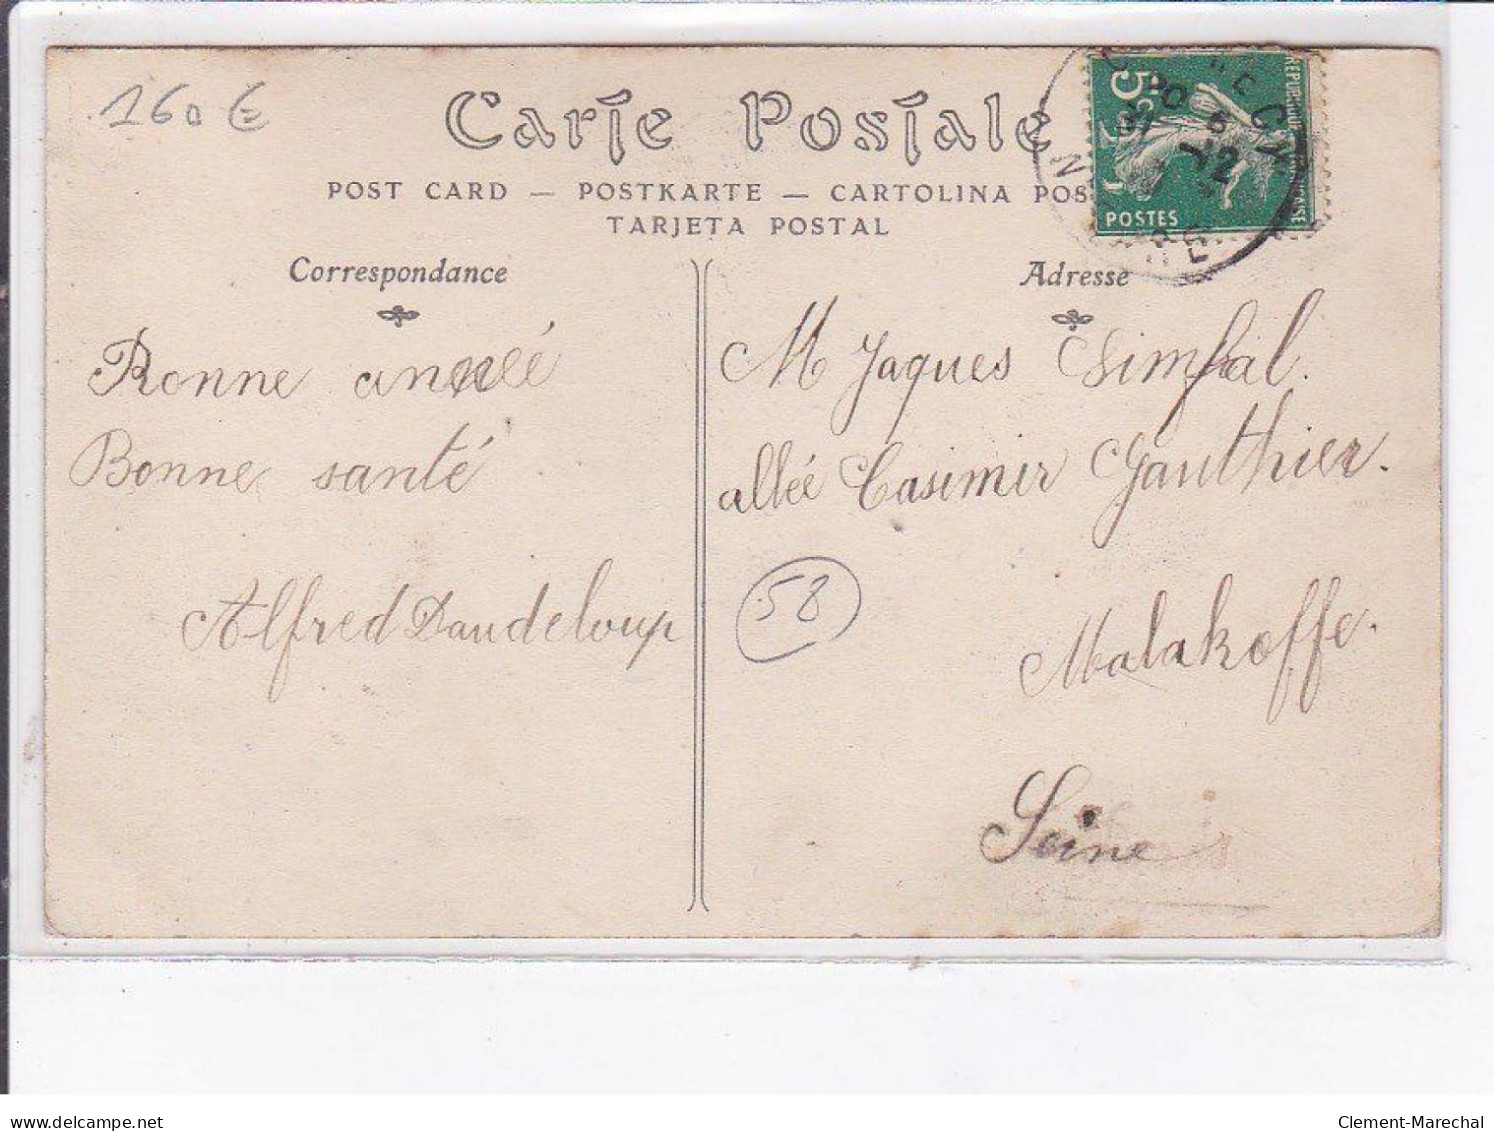 160 €
Carte Postale
POST CARD — POSTKARTE — CARTOLINA POS
TARJETA POSTAL
5c
REPUBLIQUE FRANÇAISE
POSTES
Correspondance
Bonne année
Bonne santé
Alfred Daudeloup
Adresse
M Jaques Simfal.
allée Casimir Gauthier.
58
Malakoffe.
Seine
delcampe.net
Clement-Marechal